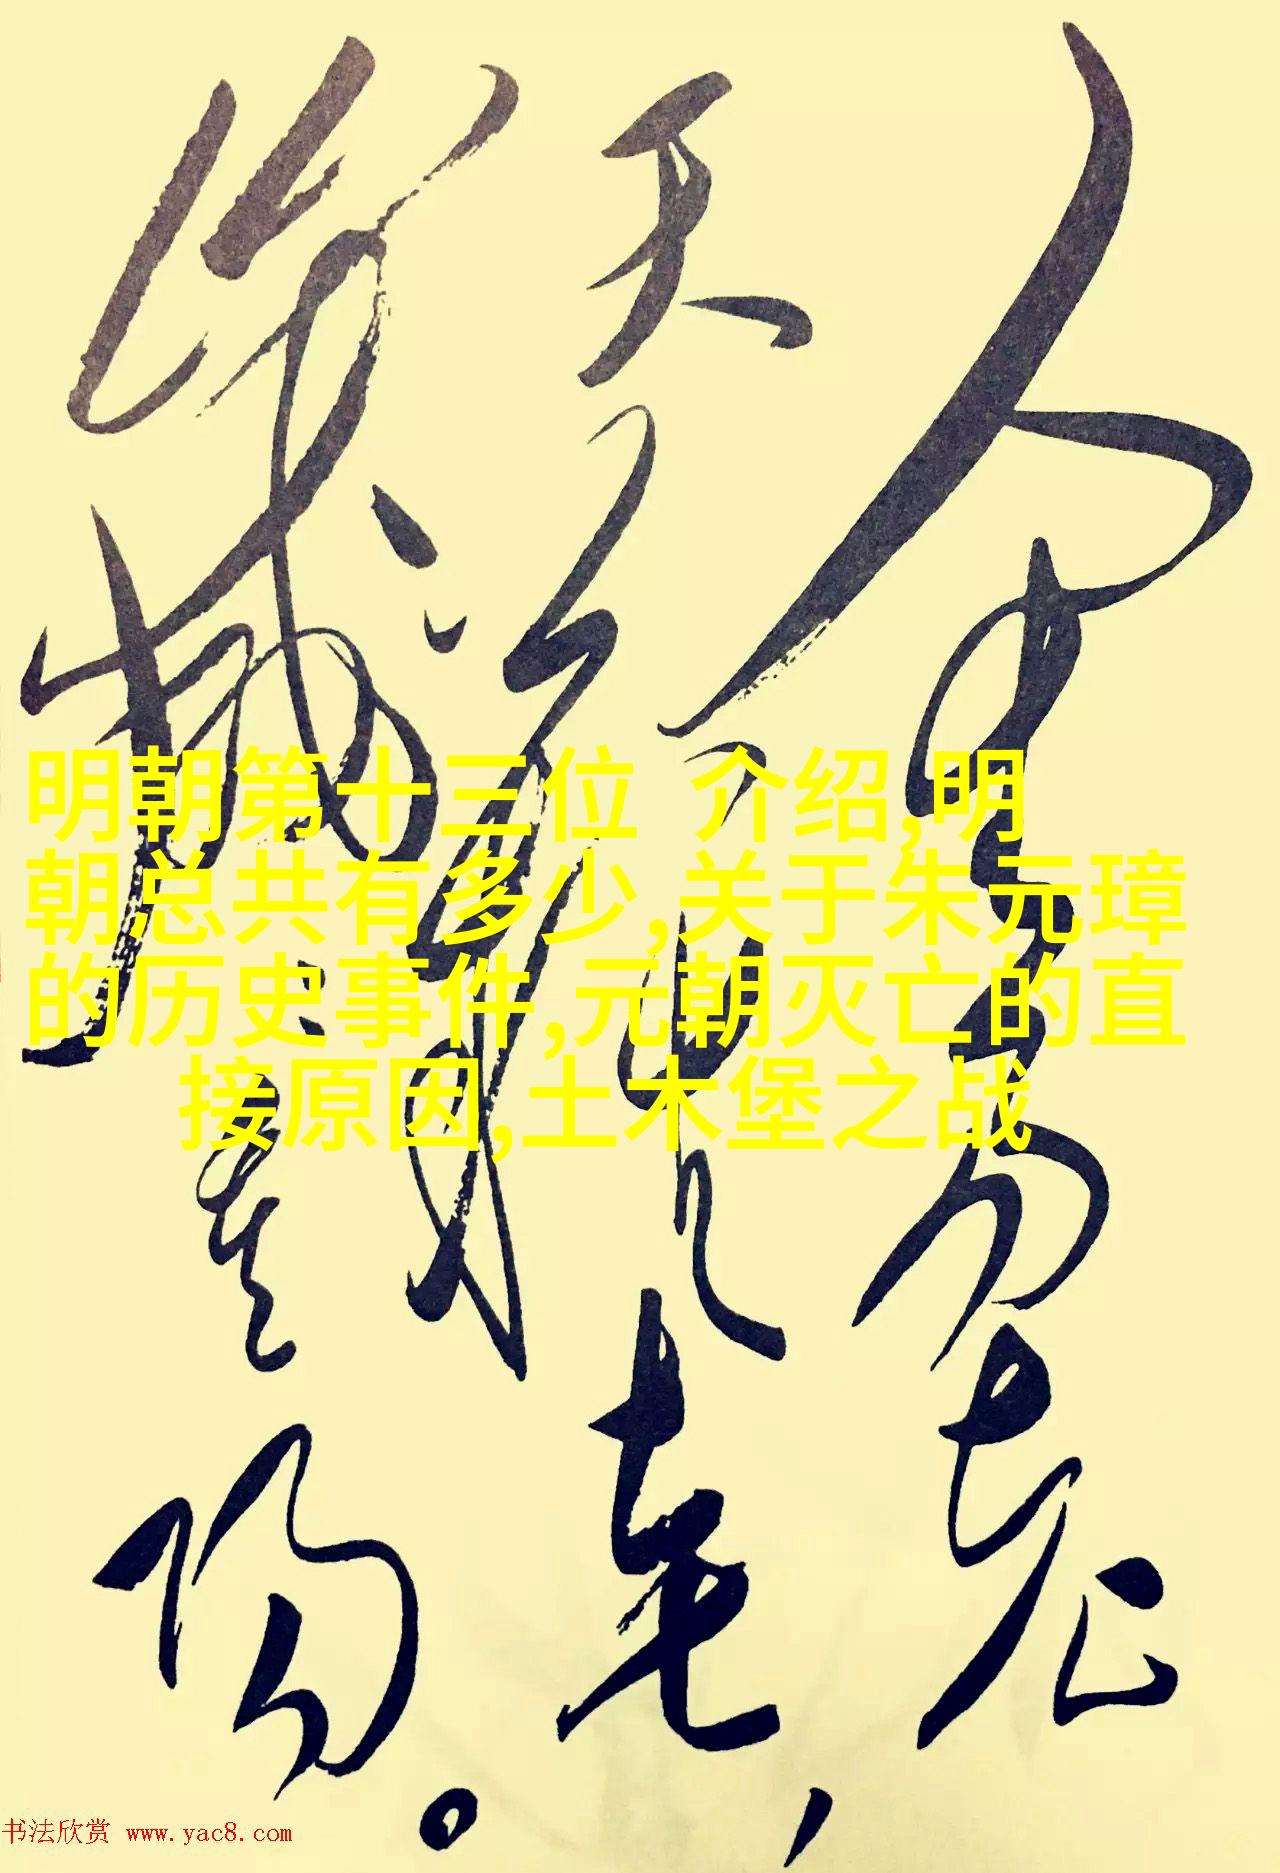 人生易老
天難老，
歲々重陽。
明朝第十三位 介绍,明
朝总共有多少,关于朱元璋
的历史事件,元朝灭亡的直
接原因,土木堡之战
书法欣赏 www.yac8.com